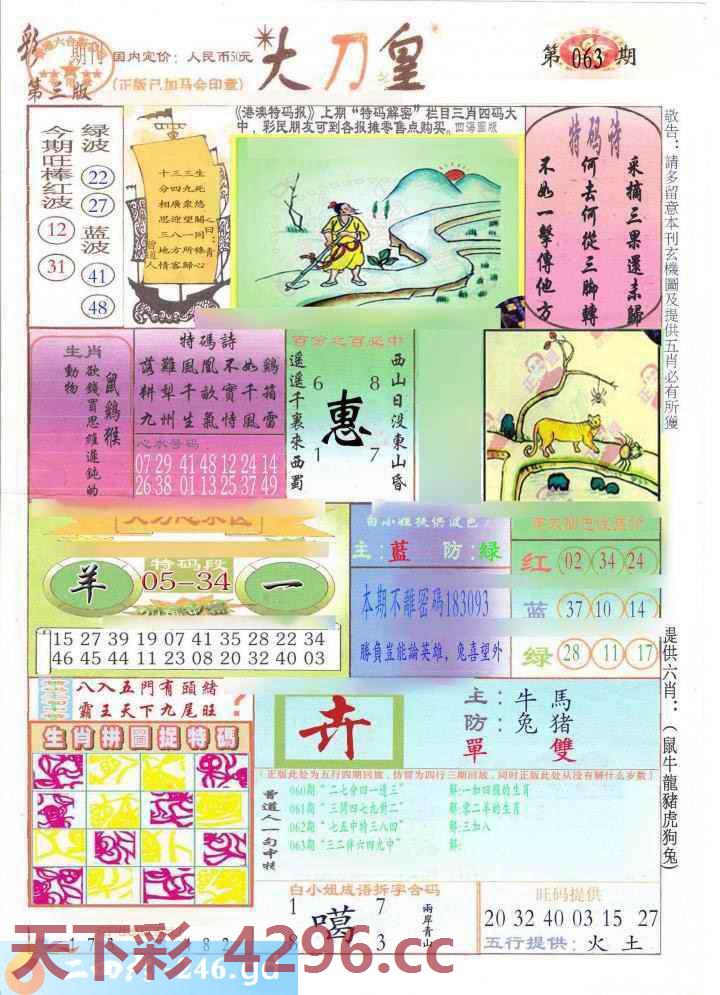 彩
期刊
第三版
国内定价：人民币50元
(正版已加马会印章)
大刀皇
第063期
《港澳特码报》上期“特码解密”栏目三肖四码大
中，彩民朋友可到各报摊零售点购买。四海圖版
绿波
22
27
蓝波
41
48
今期旺棒红波
12
31
十三三生
分四九死
相廣眾悠
思迎望關
三八一同
地方所條
情客歸心
曾道人
特码诗
采摘三果還未歸
何去何從三脚轉
不如一擊傳他方
敬告：請多留意本刊玄機圖及提供五肖必有所獲
生肖
動物
欲錢買思維遲鈍的
鼠鷄猴
特碼詩
落難鳳凰不如鷄
耕犁千畝實千箱
九州生氣恃風雷
心水号码
07 29 41 48 12 24 14
26 38 01 13 25 37 49
百分之百必中
西山日没東山昏
遥遥千裏來西蜀
6 8
惠
1 7
羊
特码段
05-34
一
15 27 39 19 07 41 35 28 22 34
46 45 44 11 23 08 20 32 40 03
白小姐提供波色
主：蓝 防：绿
本期不離密碼183093
勝負豈能論英雄，兔喜望外
红 02 34 24
蓝 37 10 14
绿 28 11 17
提供六肖：（鼠牛龍豬虎狗兔）
八入五門有頭緒
霸王天下九尾旺
？
生肖拼圖捉特碼
卉
主：牛 馬
防：兔 猪
單 雙
（正版此处为五行四期回放，仿冒为四行三期回放，同时正版此处从没有解什么岁数）
曾道人一句中特
060期 “二七分四一連三” 解：一如四報的生肖
061期 “三問四七九對二” 解：蒙二羊的生肖
062期 “七五中特三八四” 解：三如八
063期 “三二伴六四九中” 解：
白小姐成语拆字合码
1 7
噶
兩岸青山
3
旺码提供
20 32 40 03 15 27
五行提供：火 土
天下彩 4296.cc
246.gd